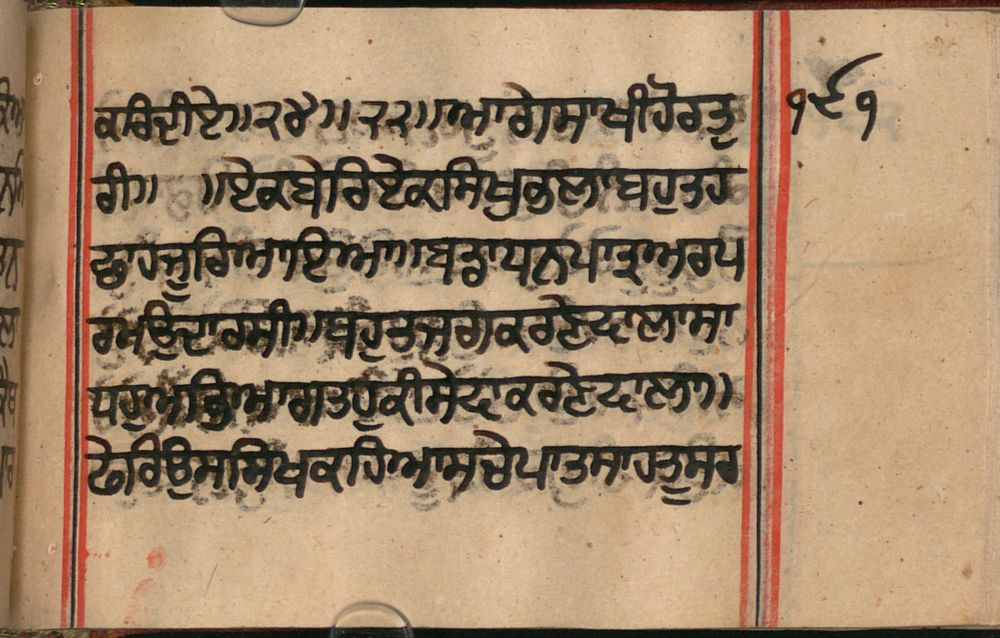 ਕਰਿਦੀਏ॥੨੪॥੨੨॥ਆਗੇਸਾਖੀਹੋਰਤੁ ੧੯੧
ਰੀ॥ ॥ਏਕਬੇਰਿਏਕਸਿਖੁਭਲਾਬਹੁਤਹ
ਛਾਹਜੂਰਿਆਇਆ॥ਬਡਾਧਨਪਾਤ੍ਰਅਰਪ
ਰਮਉਦਾਰਸੀ॥ਬਹੁਤਜਗਕਰਣੇਵਾਲਾਸਾ
ਧਹੁਅਭਿਆਗਤਹੁਕੀਸੇਵਾਕਰਣੇਵਾਲਾ॥
ਫੇਰਿਉਸਸਿਖਕਹਿਆਸਚੇਪਾਤਸਾਹਤੂਸਰ